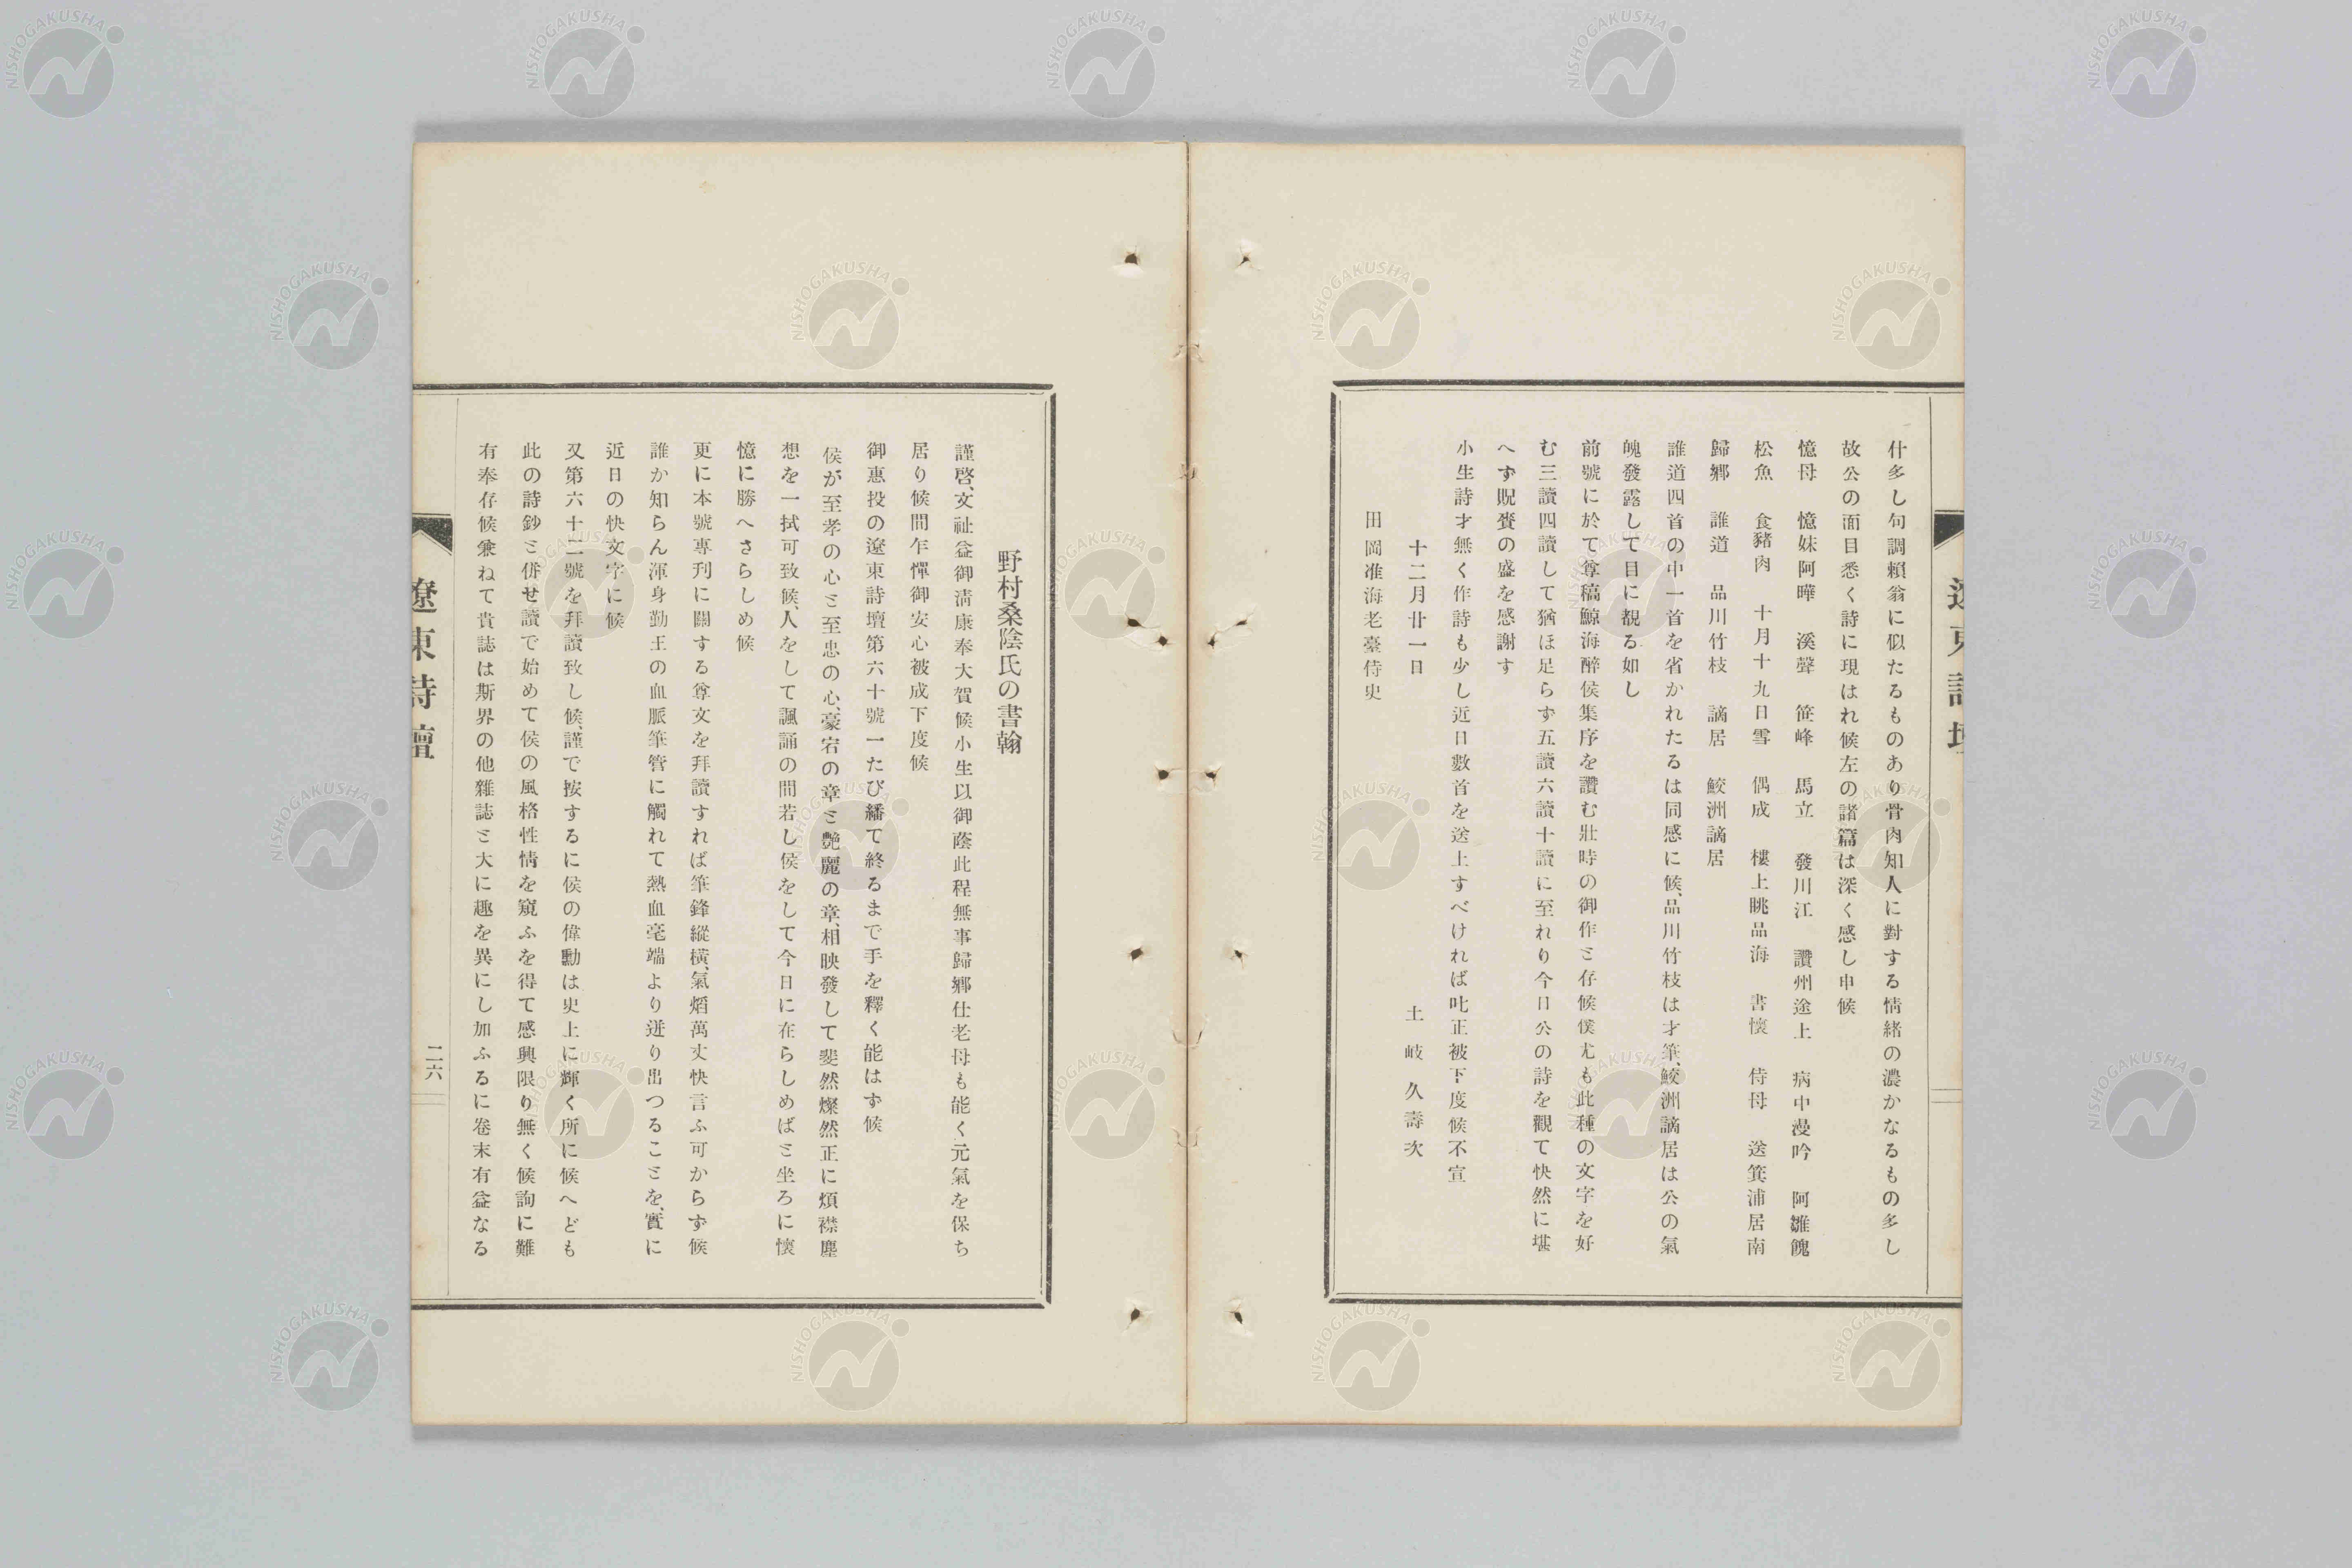 什多し句調賴翁に似たるものあり骨肉知人に對する情緒の濃かなるもの多し
故公の面目悉く詩に現はれ候左の諸篇は深く感し申候
憶母　憶妹阿曄　溪聲　笹峰　馬立　發川江　讚州途上　病中漫吟　阿雛餽
松魚　食豬肉　十月十九日雪　偶成　樓上眺品海　書懷　侍母　送箕浦居南
歸鄉　誰道　品川竹枝　謫居　鮫洲謫居
誰道四首の中一首を省かれたるは同感に候、品川竹枝は才筆、鮫洲謫居は公の氣
魄發露して目に覩る如し
前號に於て尊稿鯨海醉侯集序を讀む壯時の御作と存候僕尤も此種の文字を好
む三讀四讀して猶ほ足らず五讀六讀十讀に至れり今日公の詩を觀て快然に堪
へず貺賚の盛を感謝す
小生詩才無く作詩も少し近日數首を送上すべければ叱正被下度候不宣
十二月廿一日　土岐久壽次
田岡淮海老臺侍史
遼東詩壇
野村桑陰氏の書翰
謹啓、文祉益御淸康奉大賀候小生以御蔭此程無事歸鄉仕老母も能く元氣を保ち
居り候間乍憚御安心被成下度候
御惠投の遼東詩壇第六十號一たび繙て終るまで手を釋く能はず候
侯が至孝の心と至忠の心、豪宕の章と艷麗の章、相映發して斐然燦然正に煩襟塵
想を一拭可致候、人をして諷誦の間若し侯をして今日に在らしめばと坐ろに懷
憶に勝へさらしめ候
更に本號專刋に關する尊文を拜讀すれば筆鋒縱橫、氣熖萬丈快言ふ可からず候
誰か知らん渾身勤王の血脈筆管に觸れて熱血毫端より迸り出つることを、實に
近日の快文字に候
又第六十二號を拜讀致し候、謹で按するに侯の偉勳は史上に輝く所に候へども
此の詩鈔と併せ讀で始めて侯の風格性情を窺ふを得て感興限り無く候詢に難
有奉存候兼ねて貴誌は斯界の他雜誌と大に趣を異にし加ふるに卷末有益なる
遼東詩壇
二六
NISHOGAKUSHA